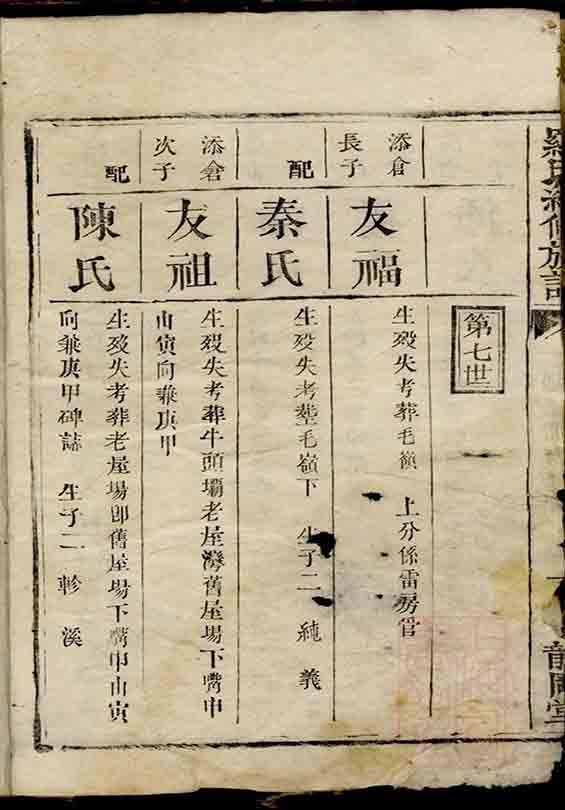 羅氏續修族譜
第七世
添倉
長子
友福
生殁失考葬毛嶺 上分係雷房管
配
秦氏
生殁失考塟毛嶺下 生子二 純 義
添倉
次子
友祖
生殁失考葬牛頭壩老屋灣舊屋場下嘴申
山寅向兼庚甲
配
陳氏
生殁失考葬老屋場即舊屋場下嘴申山寅
向兼庚甲碑誌 生子二 軫 溪